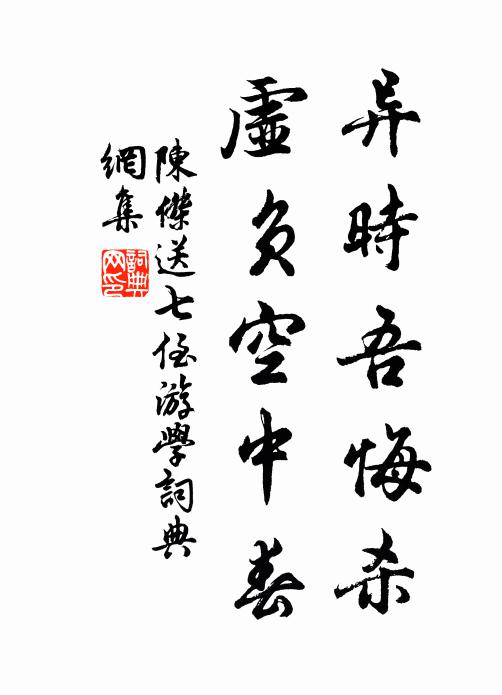 异時吾悔杀
虛負空中春
陳傑送七侄游學詞典
網集
詞典網印